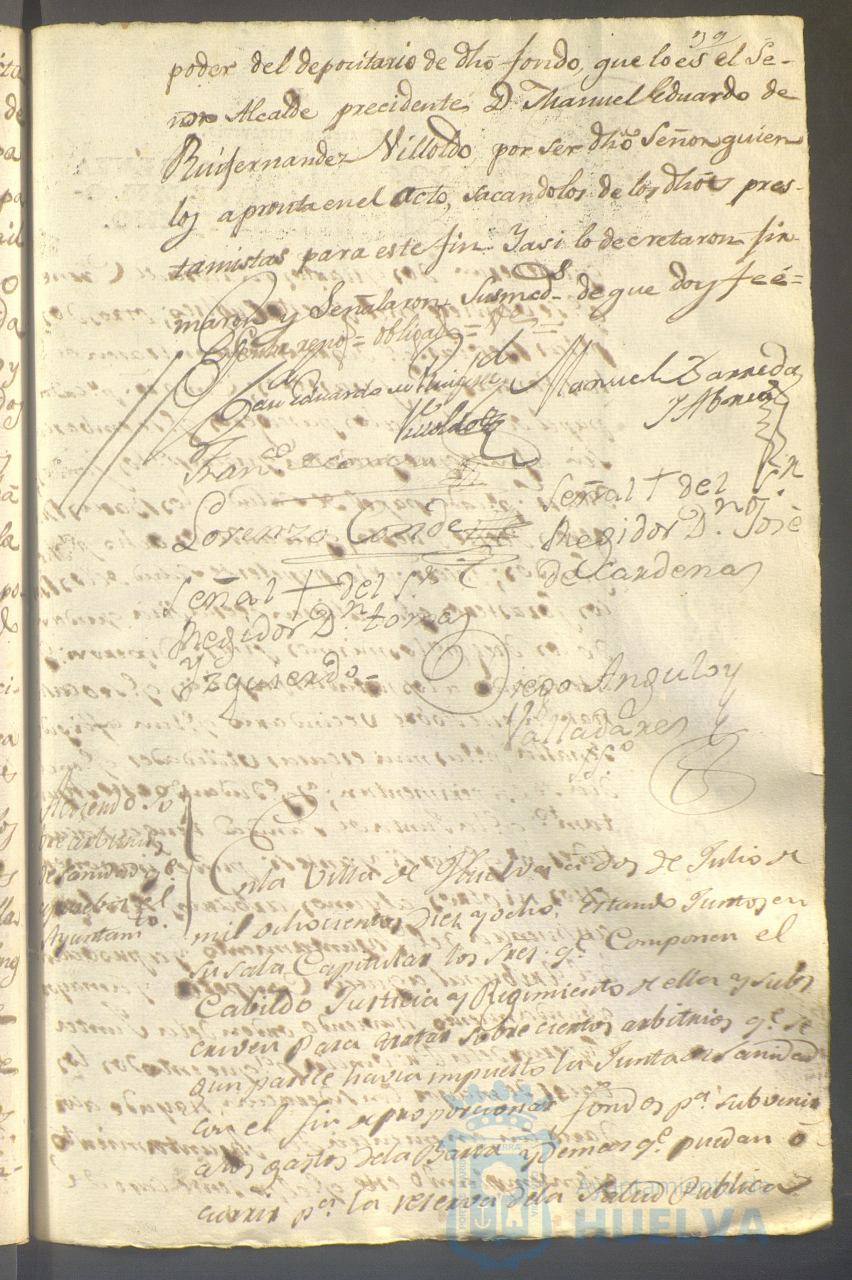 poder del depocitario de dho fondo, que lo es el Se-
ñor Alcalde precidente D. Manuel Eduardo de
Ruifernandez Villoldo por ser dho Señor quien
los apronta en el Acto, sacandolos de los dhos pres-
tamistas para este fin. Y asi lo decretaron fir-
maron y Señalaron Susmeds. de que doy feé=
= obligado =
Manuel Barreda
y Abreu
Villoldo
Franco
Lorenzo Conde
Señal + del Sr.
Regidor Dn. José
de Cardenas
Señal + del Sr.
Regidor Dn. tomas
Yzquierdo=
Diego Angulo y
Valladares
SSno
Acuerdo so
bre arbitrios
de Sanidad q.e
aprueba el
Ayuntamto.
En la Villa de Huelva a dos de Julio de
mil ochocientos diez y ocho. Estando Juntos en
su sala Capitular los Sres. q.e Componen el
Cabildo Justicia y Regimiento de ella y subs
criven para tratar sobre ciertos arbitrios q.e se
gun parece havia impuesto la Junta de Sanidad
con el fin de proporcionar fondos pa. subvenir
a los gastos de la Barca y demas q.e puedan o
currir pa. la reserva de la Salud Publica
Ayuntamiento de
HUELVA